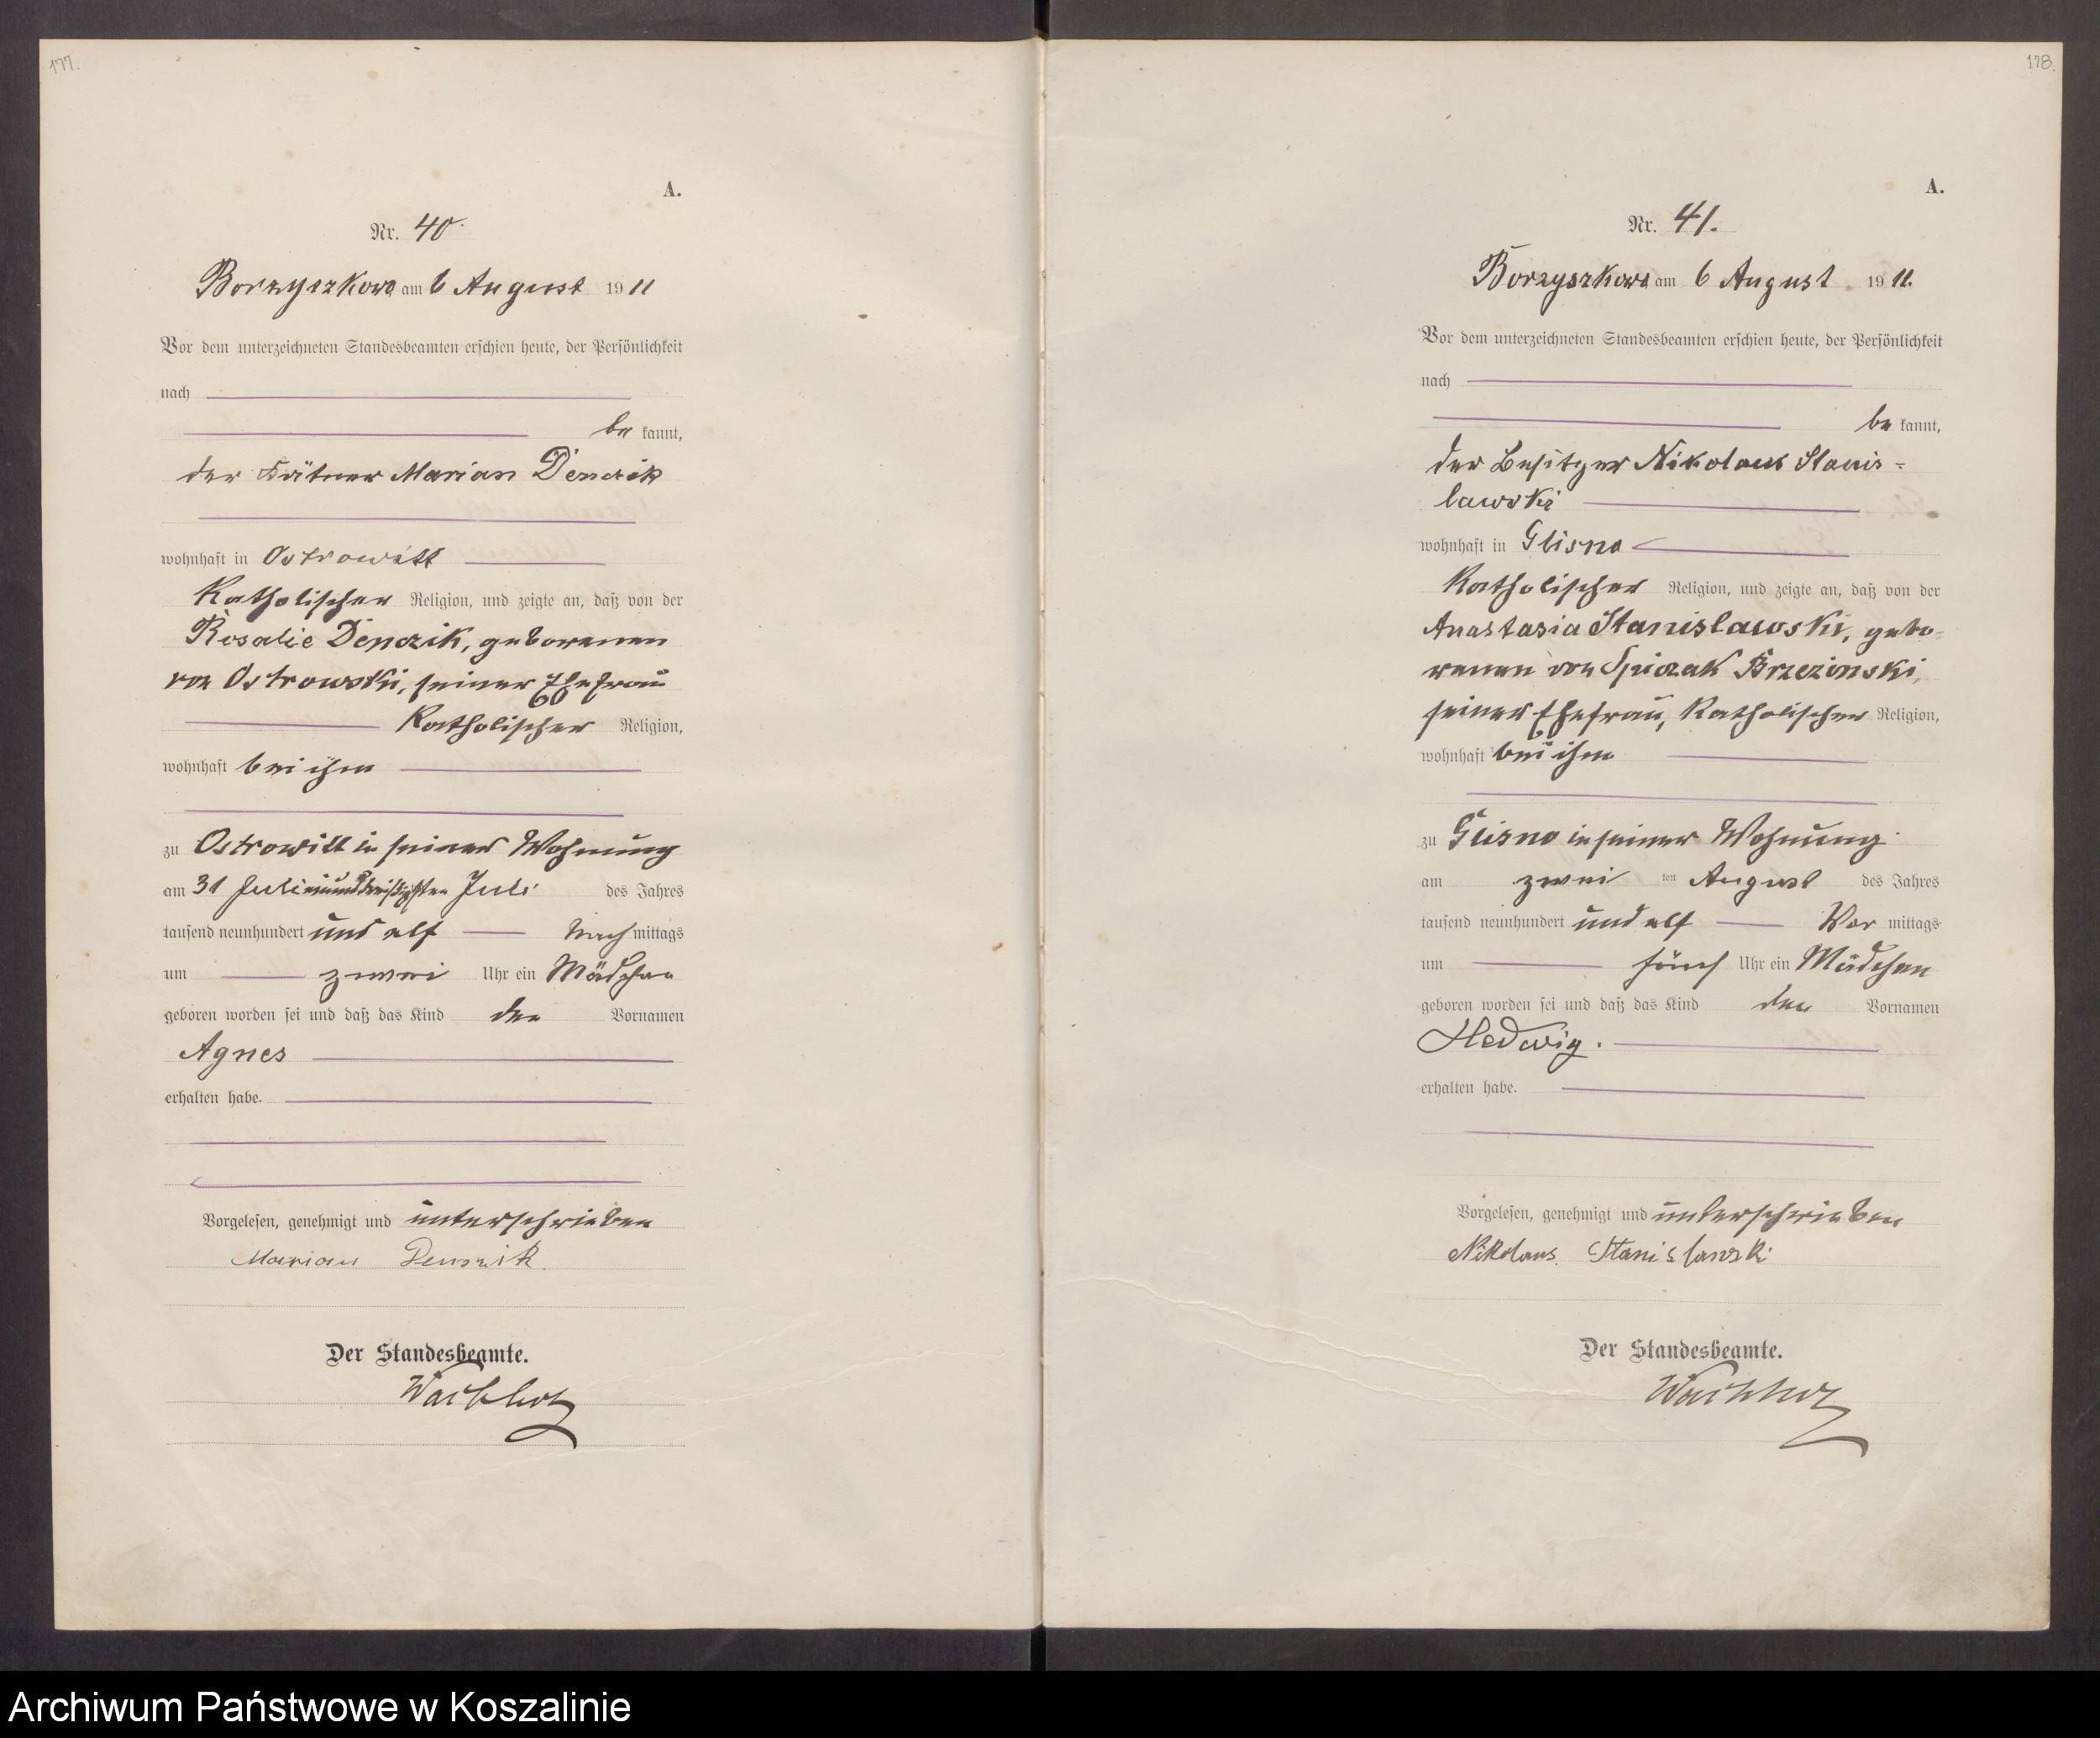 177.
A.
Nr. 40.
Borzyszkowo am 6 August 19 11
Vor dem unterzeichneten Standesbeamten erschien heute, der Persönlichkeit
nach
be kannt,
der Kätner Marian Denczik
wohnhaft in Ostrowitt
Katholischer Religion, und zeigte an, daß von der
Rosalie Denczik, geborenen
von Ostrowski, seiner Ehefrau
Katholischer Religion,
wohnhaft bei ihm
zu Ostrowitt in seiner Wohnung
am 31 Juli einunddreißigsten Juli des Jahres
tausend neunhundert und elf Nach mittags
um zwei Uhr ein Mädchen
geboren worden sei und daß das Kind den Vornamen
Agnes
erhalten habe.
Vorgelesen, genehmigt und unterschrieben
Marian Denczik
Der Standesbeamte.
178.
A.
Nr. 41.
Borzyszkowo am 6 August 19 11.
Vor dem unterzeichneten Standesbeamten erschien heute, der Persönlichkeit
nach
be kannt,
der Besitzer Nikolaus Stanis=
lawski
wohnhaft in Glisno
Katholischer Religion, und zeigte an, daß von der
Anastasia Stanislawski, gebo=
renen von Spiczak Brzezinski,
seiner Ehefrau, Katholischer Religion,
wohnhaft bei ihm
zu Glisno in seiner Wohnung
am zwei ten August des Jahres
tausend neunhundert und elf Vor mittags
um fünf Uhr ein Mädchen
geboren worden sei und daß das Kind den Vornamen
Hedwig.
erhalten habe.
Vorgelesen, genehmigt und unterschrieben
Nikolaus Stanislawski
Der Standesbeamte.
Archiwum Państwowe w Koszalinie